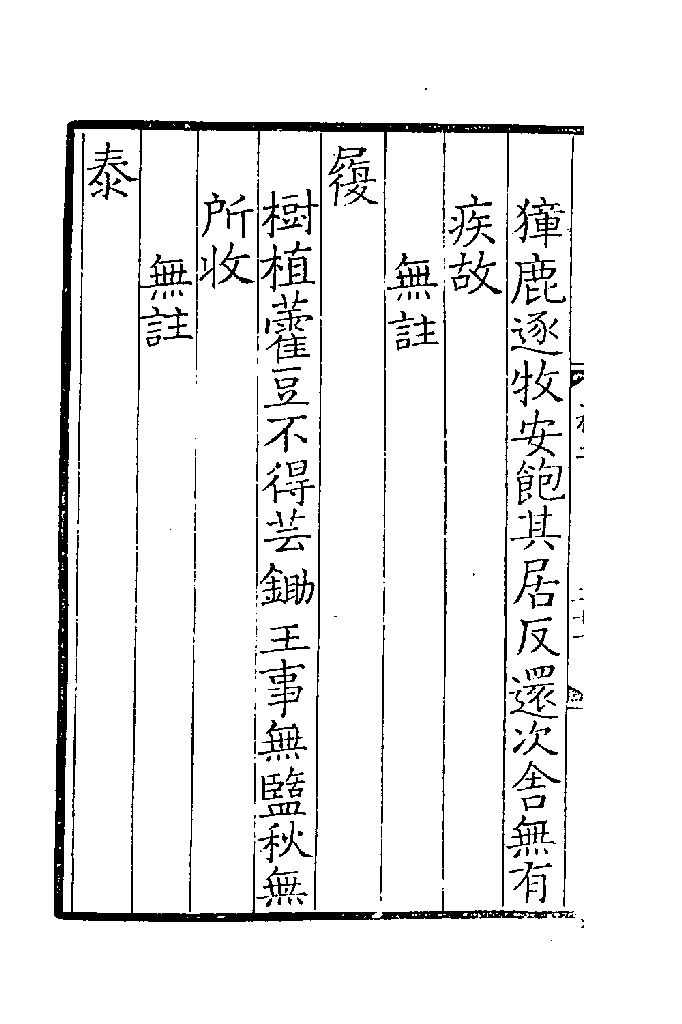 獐鹿逐牧安飽其居反還次舍無有
疾故
無註
履
樹植藿豆不得芸鋤王事無盬秋無
所收
無註
泰